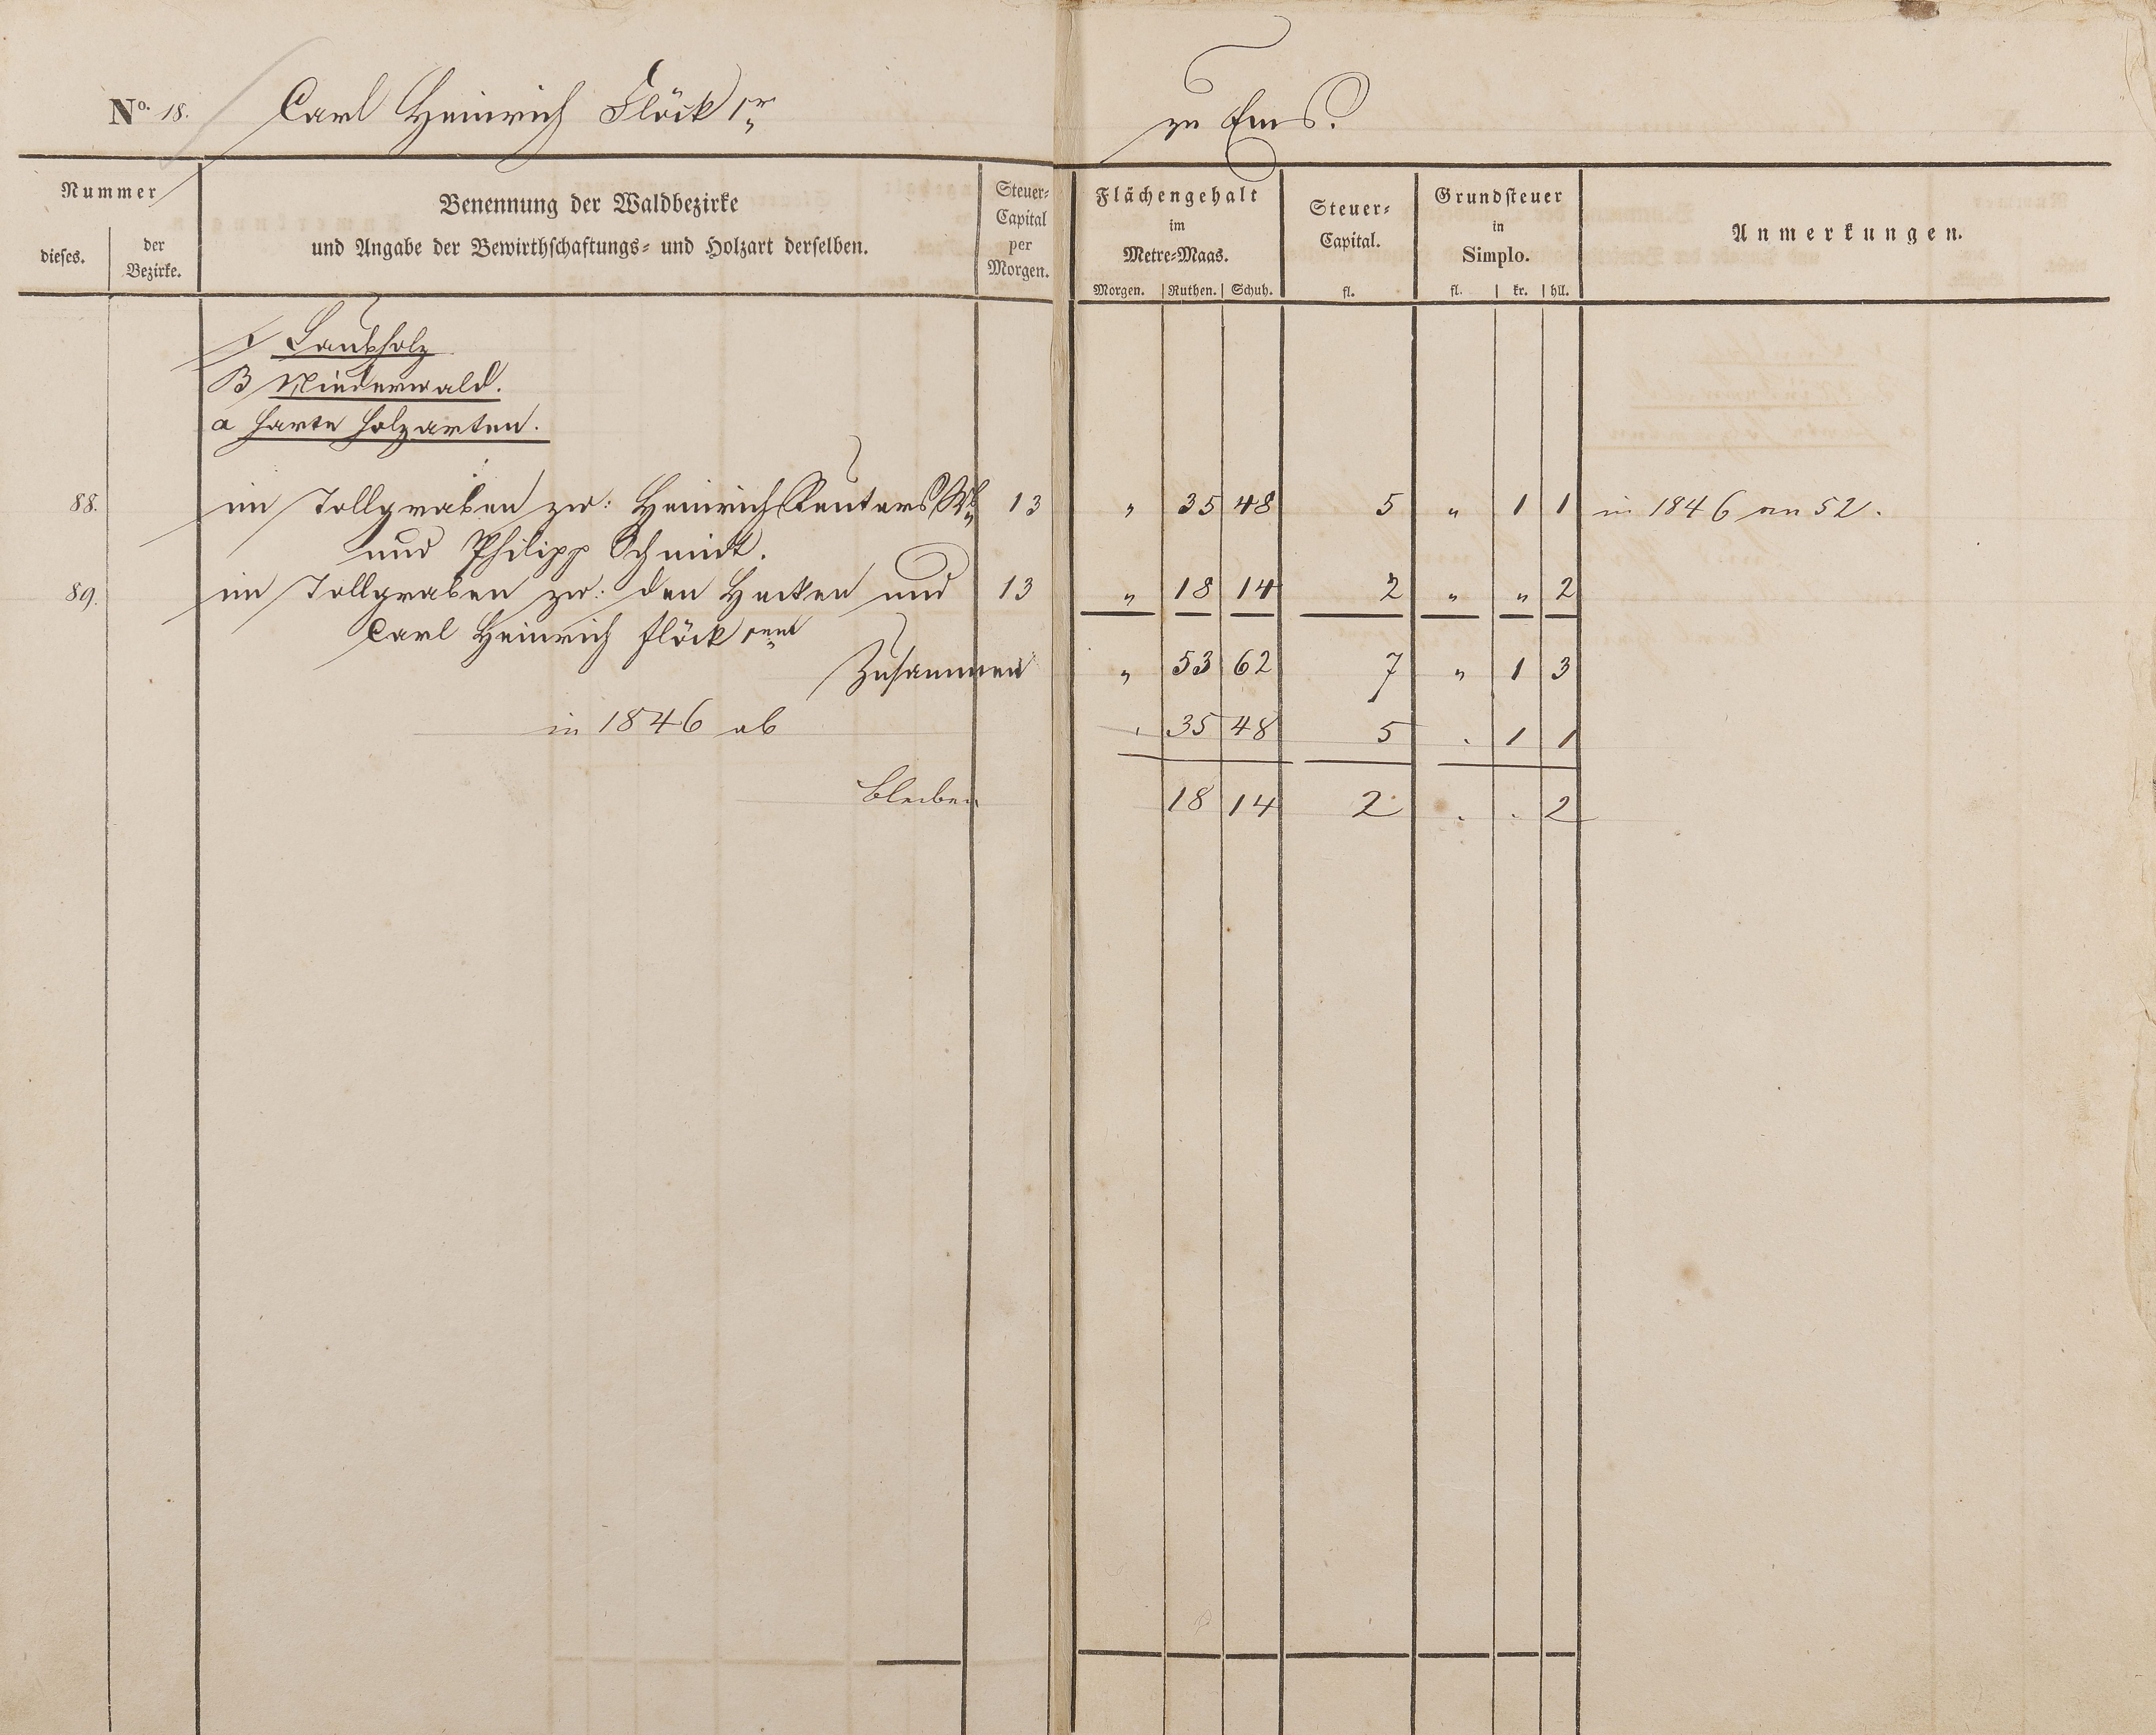 No. 18. Carl Heinrich Flöck 1r zu Ems.
Nummer
dieses.
der
Bezirke.
Benennung der Waldbezirke
und Angabe der Bewirthschaftungs- und Holzart derselben.
Steuer-
Capital
per
Morgen.
Flächengehalt
im
Metre-Maas.
Morgen. Ruthen. Schuh.
Steuer-
Capital.
fl.
Grundsteuer
in
Simplo.
fl. kr. hll.
Anmerkungen.
Laubholz
B Niederwald.
a harte Holzarten.
88. im Tollgraben zw: Heinrich Reuters 13 " 35 48 5 " 1 1 in 1846 an 52.
und Philipp Schmidt.
89. im Tollgraben zw: den Hecken und 13 " 18 14 2 " " 2
Carl Heinrich Flöck
Zusammen " 53 62 7 " 1 3
in 1846 ab . 35 48 5 . 1 1
bleiben 18 14 2 . . 2